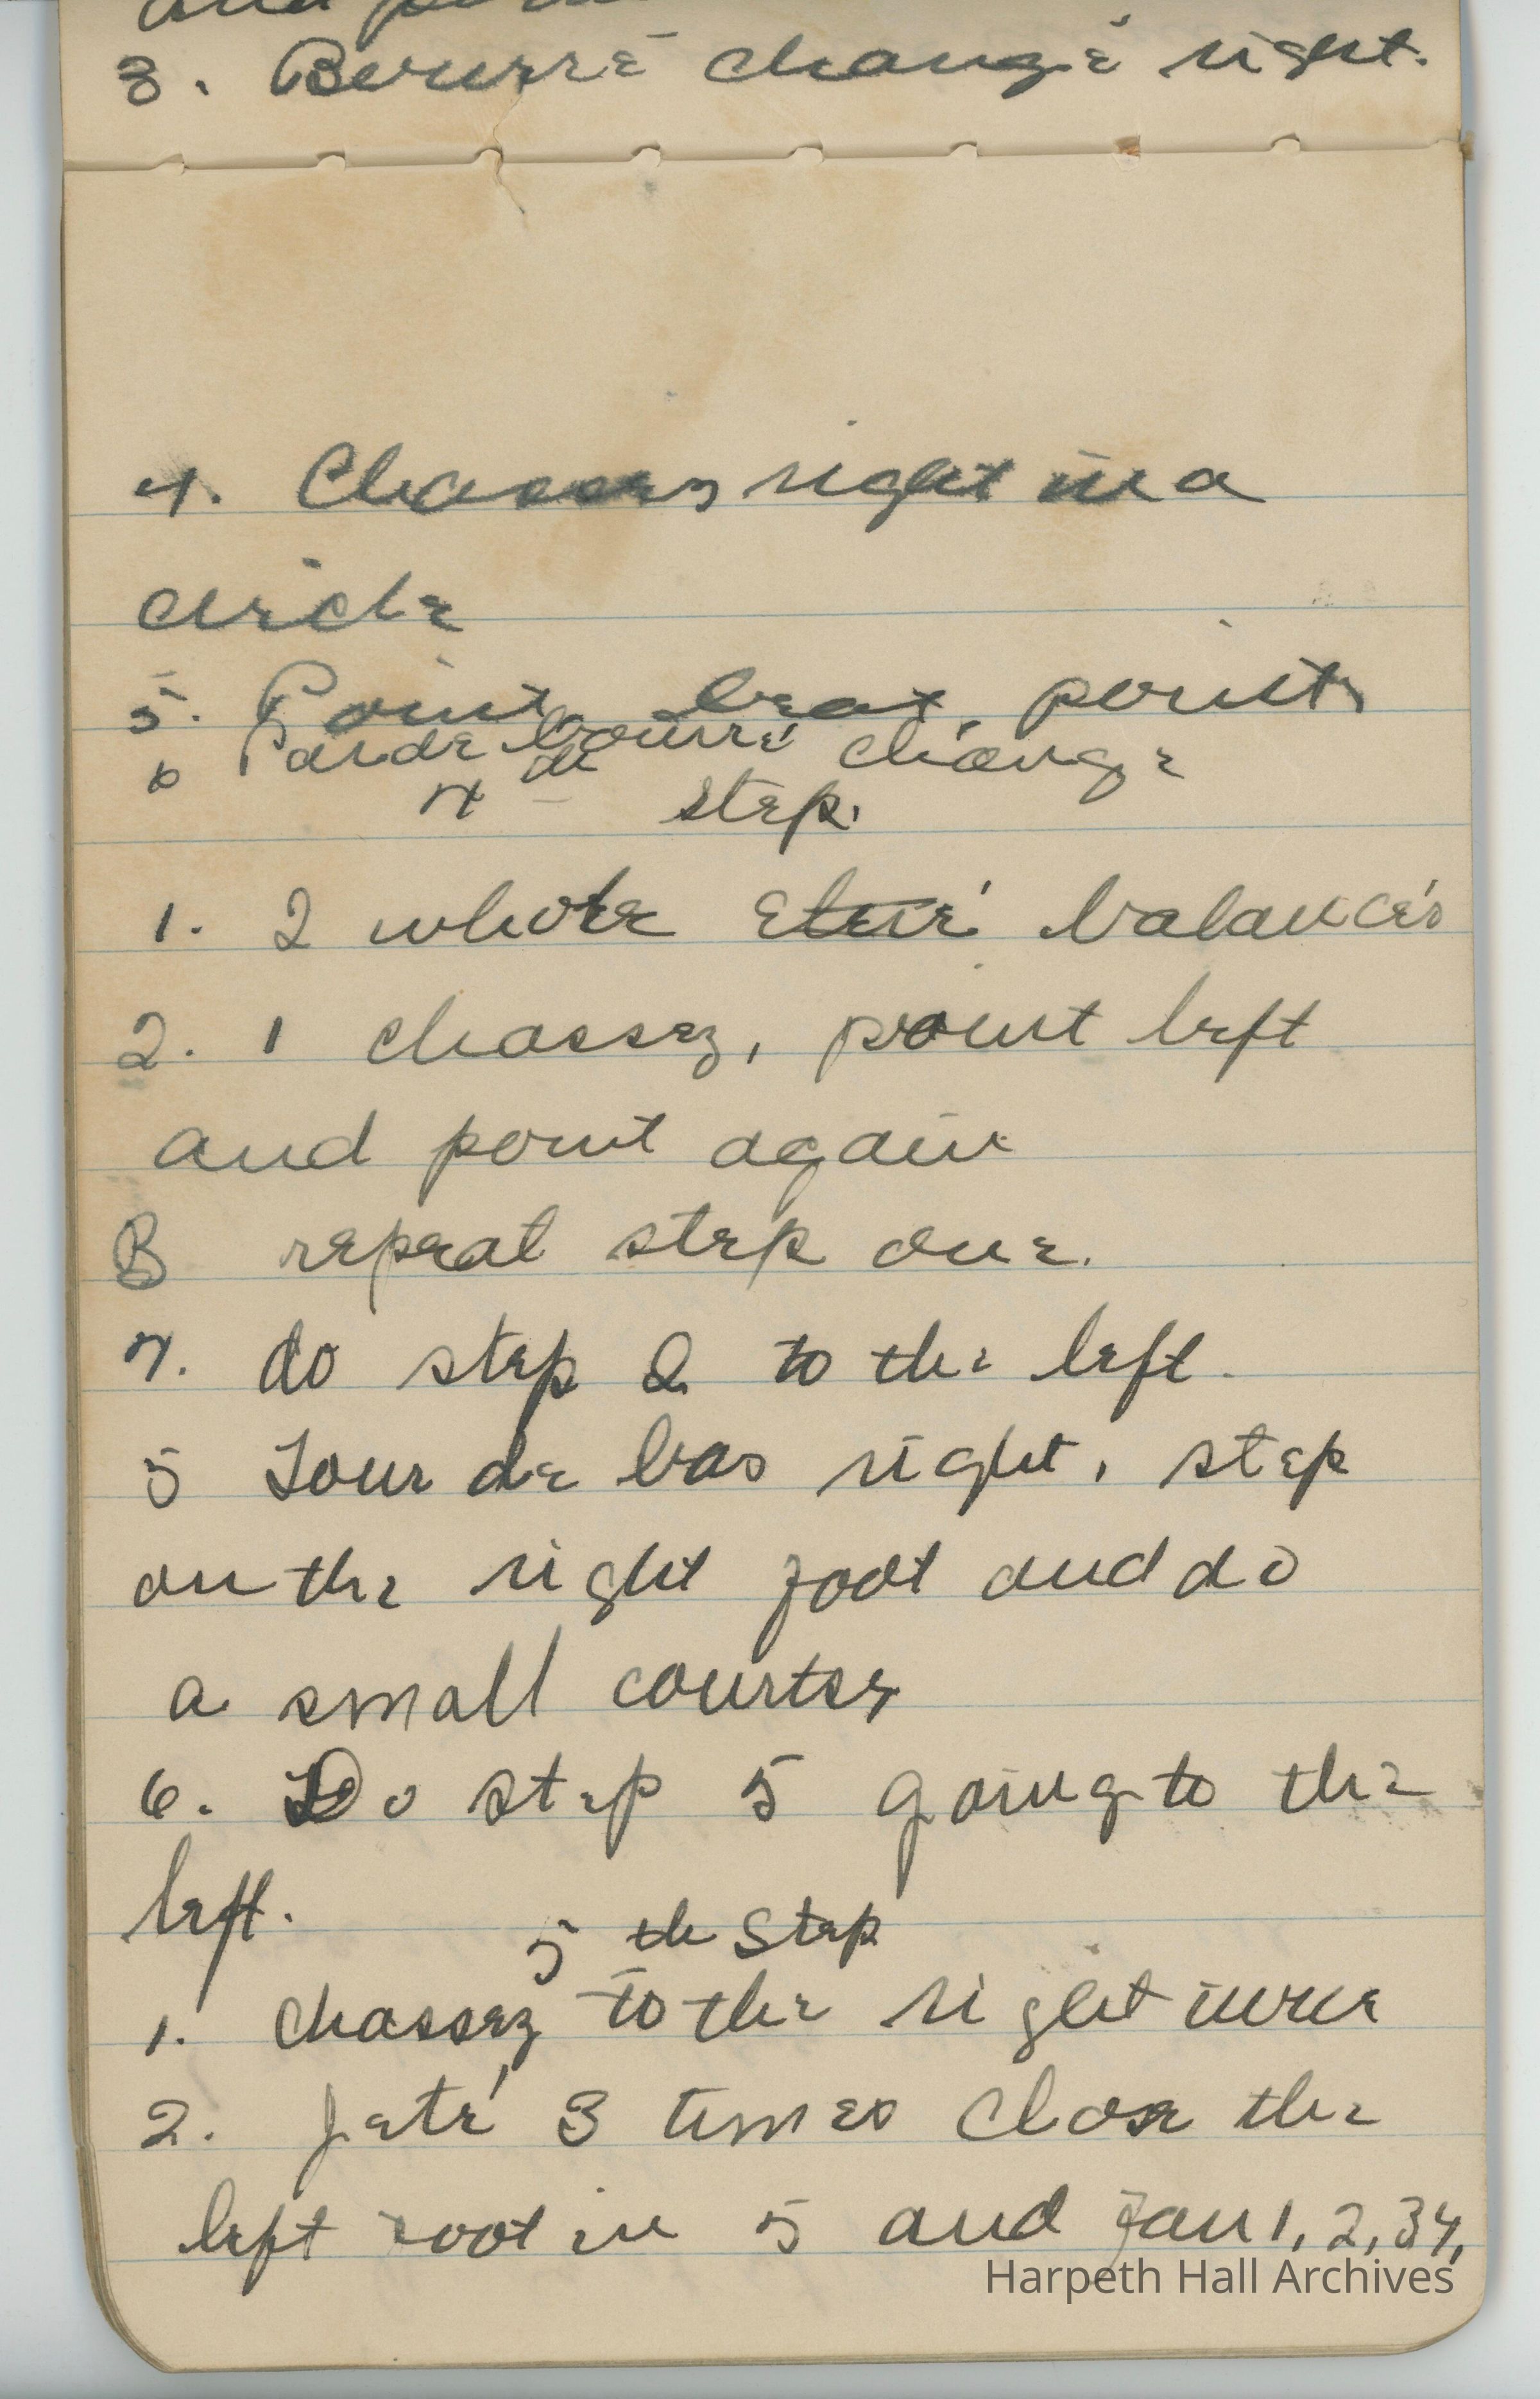 3. Bourré changé right.
4. Chassez right in a
circle
5. Point, beat, point,
6 Pas de bourré change
4 th step.
1. 2 whole balancés
2. 1 chassez, point left
and point again
3 repeat step one.
4. do step 2 to the left.
5 Tour de bas right, step
on the right foot and do
a small courtsy
6. Do step 5 going to the
left.
5 th Step
1. Chassez to the right
2. Jeté 3 times close the
left foot in 5 and fan 1, 2, 3 4,
Harpeth Hall Archives